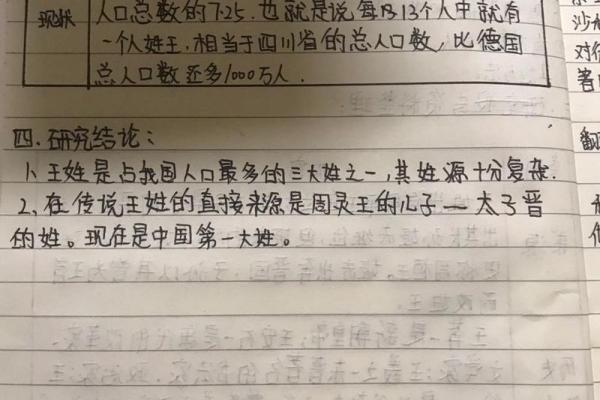 现状
人口总数的7.25.也就是说每13个人中就有
一个人姓王.相当于四川省的总人口数,比德国
总人口数还多1000万人.
四.研究结论:
1、王姓是占我国人口最多的三大姓之一,其姓源十分复杂.
2、在传说王姓的直接来源是周灵王的儿子—太子晋
的姓。现在是中国第一大姓。